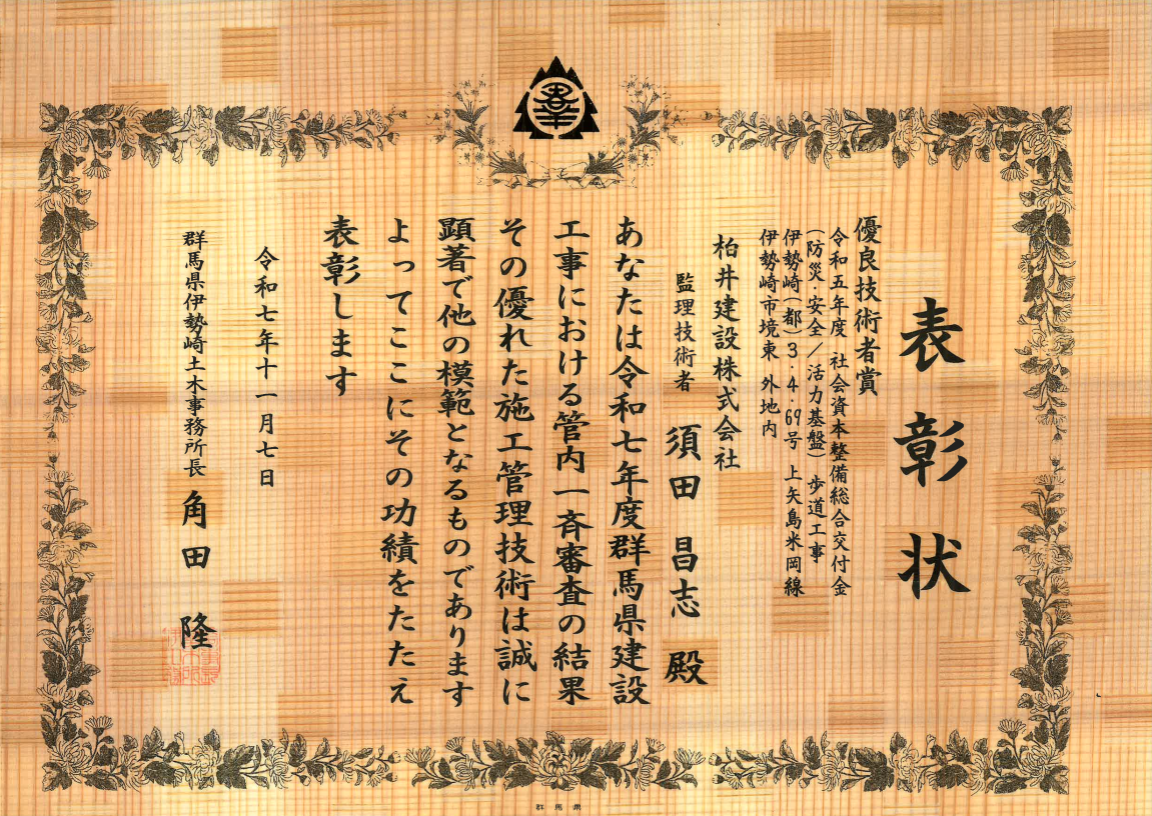 表彰状
優良技術者賞
令和五年度 社会資本整備総合交付金
(防災・安全/活力基盤) 歩道工事
伊勢崎(都)3・4・69号 上矢島米岡線
伊勢崎市境東 外地内
柏井建設株式会社
監理技術者 須田 昌志 殿
あなたは令和七年度群馬県建設
工事における管内一斉審査の結果
その優れた施工管理技術は誠に
顕著で他の模範となるものであります
よってここにその功績をたたえ
表彰します
令和七年十一月七日
群馬県伊勢崎土木事務所長 角田 隆
群馬県